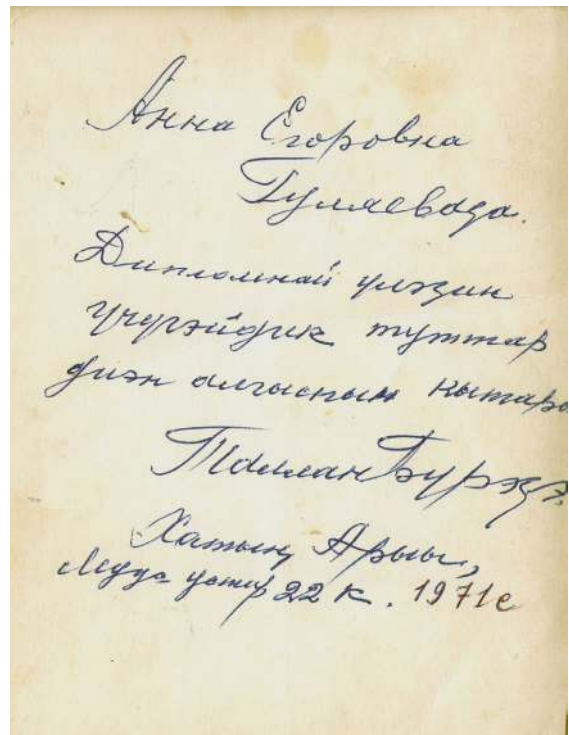 Анна Егоровна
Гуляеваҕа.
Дипломнай үлэҕин
үчүгэйдик туттар
диэн алгыспын кытары
Таллан Бүрэ.
Хатыҥ Арыы,
Муус устар 22 к. 1971 с